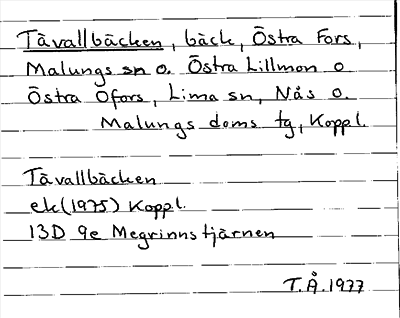 Tåvallbäcken, bäck, Östra Fors,
Malungs sn o. Östra Lillmon o
Östra Ofors, Lima sn, Nås o.
Malungs doms tg, Koppl.
Tåvallbäcken
ek (1975) Koppl.
13D 9e Megrinnstjärnen
T.Å.1977